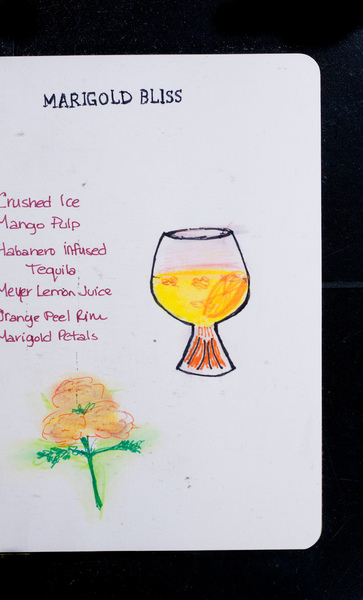 MARIGOLD BLISS
Crushed Ice
Mango Pulp
Habanero infused
Tequila
Meyer Lemon Juice
Orange Peel Rim
Marigold Petals